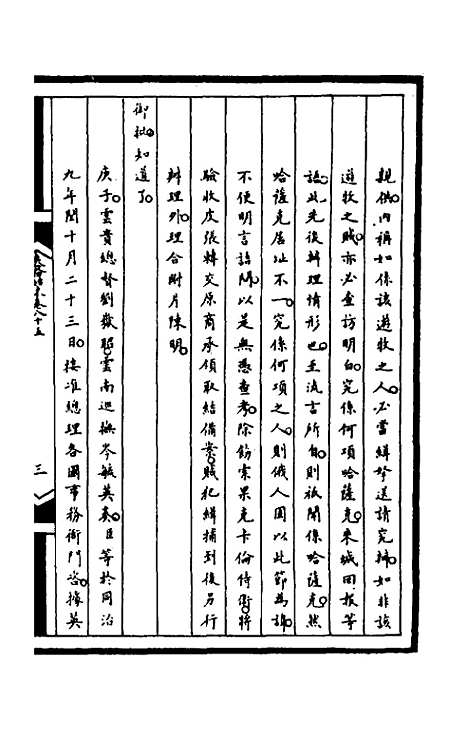 親供。內稱如係該遊牧之人。必當緝拏送請究辦。如非該
遊牧之賊。亦必查訪明白。究係何項哈薩克。來城回報等
語。此先後辦理情形也。至流言所自。則祇聞係哈薩克。然
哈薩克居址不一。究係何項之人。則俄人固以此節為諱。
不便明言詰問。以是無憑查考。除飭索果克卡倫侍衛。將
驗收皮張轉交原商承領取結備案。賊犯緝捕到後另行
辦理外。理合附片陳明。
御批。知道了。
庚子。雲貴總督劉嶽昭。雲南巡撫岑毓英奏。臣等於同治
九年閏十月二十三日。接准總理各國事務衙門咨。據英
卷八十五
三